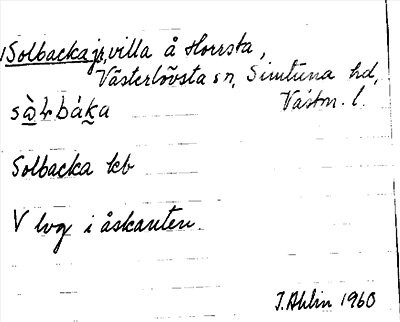 Solbacka jr, villa å Horrsta,
Västerlövsta sn, Simtuna hd,
Västm. l.
Solbacka kb
V lvg i åskanten.
I. Ahlin 1960